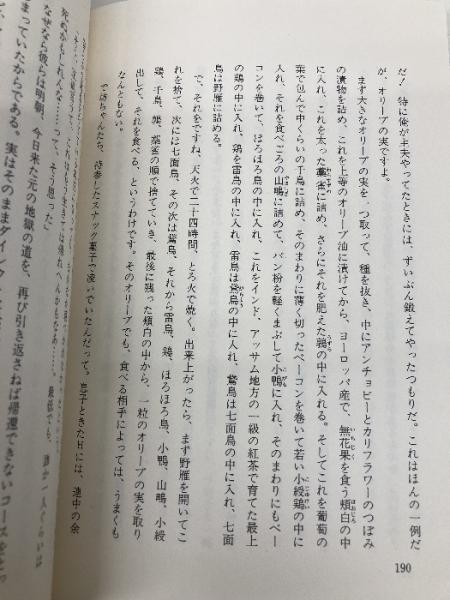 だ！ 特に俺が主夫やってたときには、ずいぶん鍛えてやったつもりだ。これはほんの一例だ
が、オリーブの実ですよ。
まず大きなオリーブの実を一つ取って、種を抜き、中にアンチョビーとカリフラワーのつぼみ
の漬物を詰め、これを上等のオリーブ油に漬けてから、ヨーロッパ産で、無花果を食う頬白の中
に入れ、これを太った藁雀に詰め、さらにそれを肥えた鶉の中に入れる。そしてこれを葡萄の
葉で包んで中くらいの千鳥に詰め、そのまわりに薄く切ったベーコンを巻いて若い小綬鶏の中に
入れ、それを食べごろの山鴫に詰めて、パン粉を軽くまぶして小鴨に入れ、そのまわりにもベー
コンを巻いて、ほろほろ鳥の中に入れ、これをインド、アッサム地方の一級の紅茶で育てた最上
の鶏の中に入れ、鶏を雷鳥の中に入れ、雷鳥は鵞鳥の中に入れ、鵞鳥は七面鳥の中に入れ、七面
鳥は野雁に詰める。
で、それをですね、天火で二十四時間、とろ火で焼く。出来上がったら、まず野雁を開いてこ
れを捨て、次には七面鳥、その次は鵞鳥、それから雷鳥、鶏、ほろほろ鳥、小鴨、山鴫、小綬
鶏、千鳥、鶉、藁雀の順で捨てていき、最後に残った頬白の中から、一粒のオリーブの実を取り
出して、それを食べる、というわけです。そのオリーブでも、食べる相手によっては、うまくも
なんともない。
で坊ちゃんたち、持参したスナック菓子で凌いでいたんだって。息子ときた日には、連中の余
死ぬかもしれんな……って、そう思った」
なぜなら彼らは明朝、今日来た元の地獄の道を、再び引き返さねば帰還できないコースをとっ
まっていたからである。実はそのままダイレク
190